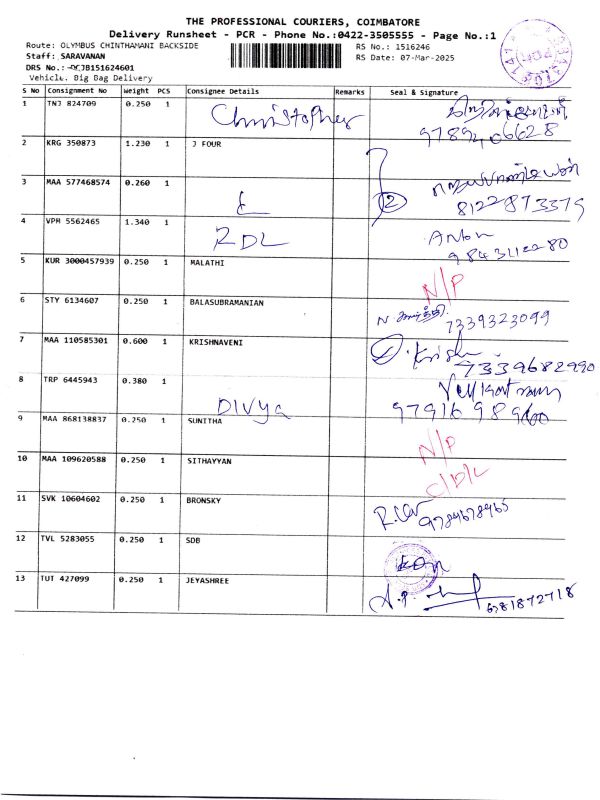 THE PROFESSIONAL COURIERS, COIMBATORE
Delivery Runsheet - PCR - Phone No.:0422-3505555 - Page No.:1
Route: OLYMBUS CHINTHAMANI BACKSIDE RS No.: 1516246
Staff: SARAVANAN RS Date: 07-Mar-2025
DRS No.: JB151624601
Vehicle. Big Bag Delivery
S No Consignment No Weight PCS Consignee Details Remarks Seal & Signature
1 TNJ 824709 0.250 1 Christopher
2 KRG 350873 1.230 1 J FOUR
3 MAA 577468574 0.260 1 2
8122873379
4 VPM 5562465 1.340 1 RDL Anton
5 KUR 3000457939 0.250 1 MALATHI N/P
6 STY 6134607 0.250 1 BALASUBRAMANIAN
7339323099
7 MAA 110585301 0.600 1 KRISHNAVENI
7339682990
8 TRP 6445943 0.380 1 Divya
9 MAA 868138837 0.250 1 SUNITHA N/P
10 MAA 109620588 0.250 1 SITHAYYAN C/D/L
11 SVK 10604602 0.250 1 BRONSKY
9789678965
12 TVL 5283055 0.250 1 SDB
13 TUT 427099 0.250 1 JEYASHREE
6381872718